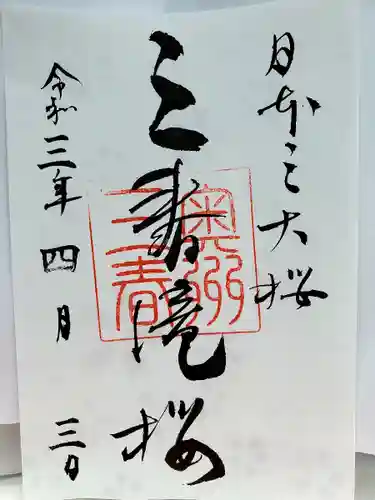 日本三大桜
三春滝桜
奥州
三春
令和三年四月三日